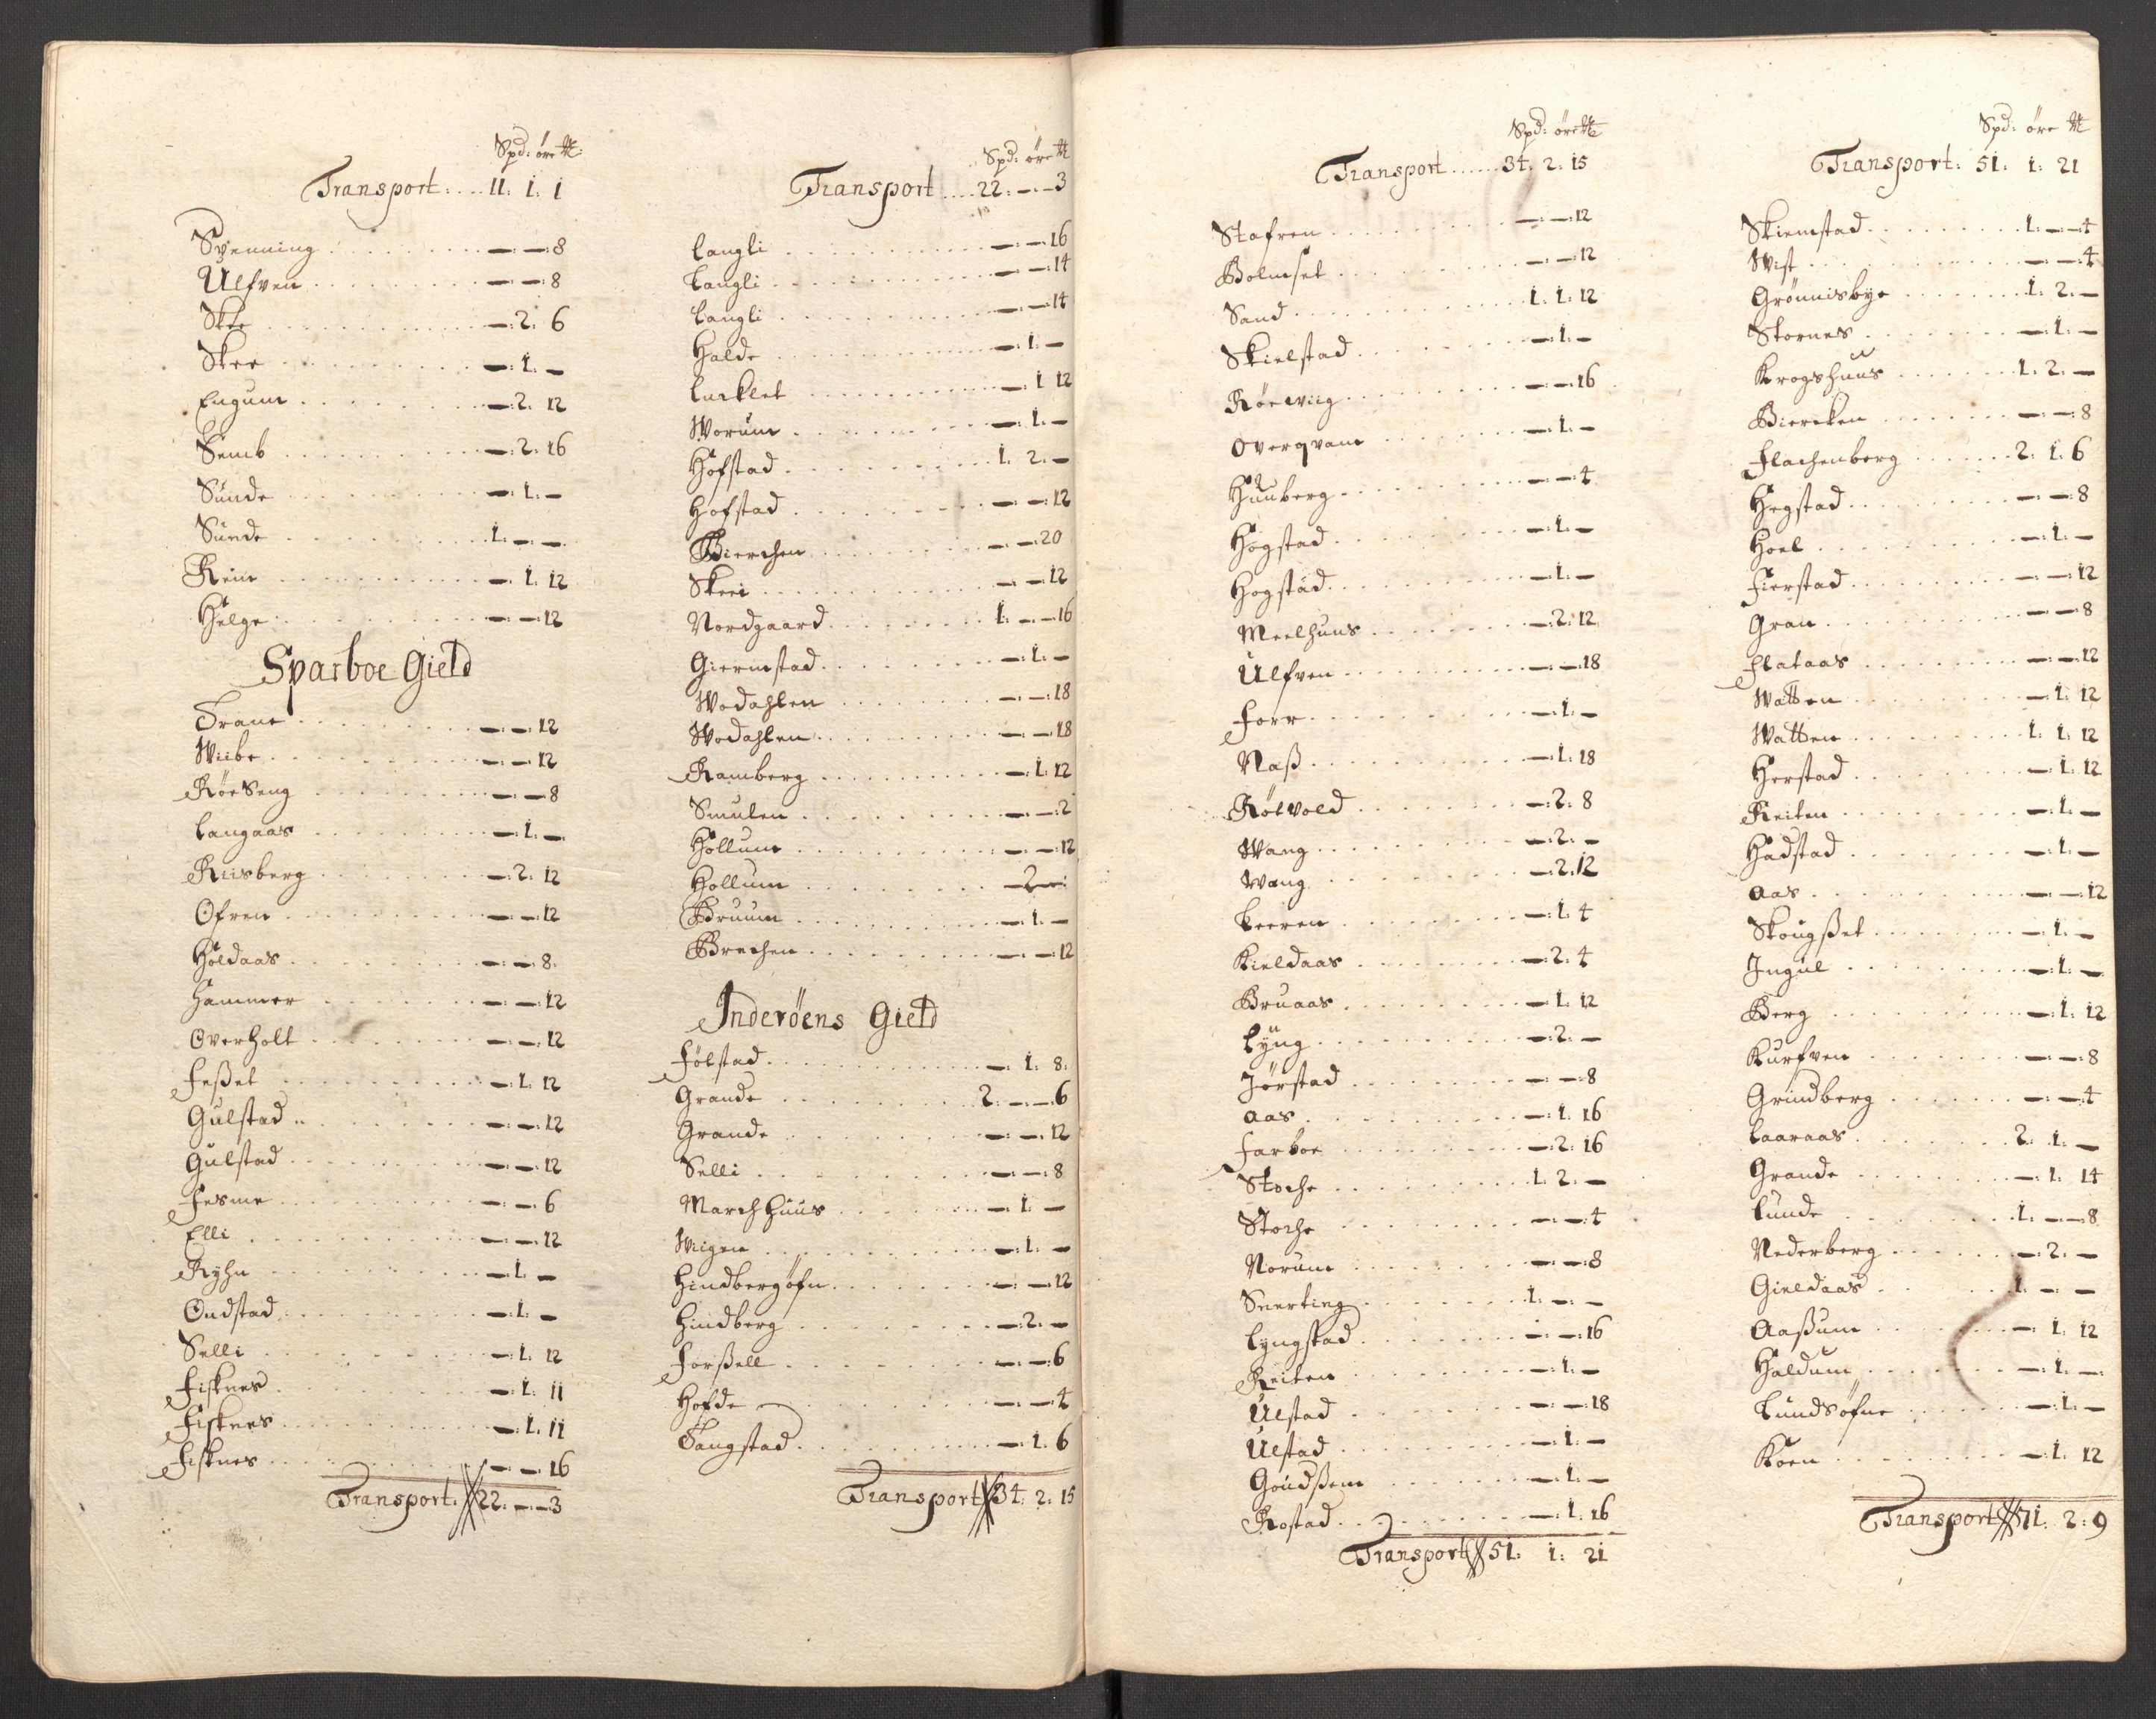 Spd: øre ℔:
Transport: 11: 1: 1
Svenning — — 8
Ulfven — — 8
Skee — 2: 6
Skee — 1: —
Engum — 2: 12
Semb — 2: 16
Sunde — 1: —
Sunde 1: — —
Rein — 1: 12
Helge — — 12
Sparboe Gield
Trane — — 12
Wiibe — — 12
Røeseng — — 8
Langaas — 1: —
Riisberg — 2: 12
Ofren — — 12
Holdaas — — 8:
Hammer — — 12
Overholt — — 12
Feßet — 1: 12
Gulstad — — 12
Gulstad — — 12
Fesme — — 6
Elli — — 12
Ryhn — 1: —
Ondstad — 1: —
Selli — 1: 12
Fisknes — 1: 11
Fisknes — 1: 11
Fisknes — — 16
Transport: 22: — 3
Spd: øre ℔
Transport 22: — 3
Langli — — 16
Langli — — 14
Langli — — 14
Halde — 1: —
Lurklet — 1 12
Worum — 1: —
Hofstad 1: 2: —
Hofstad — — 12
Bierchen — — 20
Skeei — — 12
Nordgaard 1: — 16
Giermstad — 1: —
Wodahlen — — 18
Wodahlen — — 18
Ramberg — 1: 12
Smulen — — 2
Hollum — — 12
Hollum — 2 —
Bruum — 1: —
Brechen — — 12
Inderöens Gield
Følstad — 1: 8:
Grande 2: — 6
Grande — — 12
Selli — — 8
Marchhuus — 1: —
Wiigen — 1: —
Hindbergøfn — — 12
Hindberg — 2: —
Forßell — — 6
Hofde — — 4
Tangstad — 1: 6
Transport 34: 2: 15
Spd: øre ℔
Transport 34: 2: 15
Stafren — — 12
Bolmset — — 12
Sand 1: 1: 12
Skielstad — 1: —
Røewiig — — 16
Overqvam — 1: —
Huuberg — — 4
Hogstad — 1: —
Hogstad — 1: —
Meelhuus — 2: 12
Ulfven — — 18
Forr — 1: —
Naß — 1: 18
Røtvold — 2: 8
Wang — 2: —
Wang — 2: 12
Leeren — 1: 4
Kieldaas — 2: 4
Bruaas — 1: 12
Lÿng — 2: —
Jørstad — — 8
Aas — 1: 16
Farboe — 2: 16
Stoche 1: 2: —
Stoche — — 4
Norum — — 8
Sneerting 1: — —
Lyngstad — — 16
Reiten — 1: —
Ulstad — — 18
Ulstad — 1: —
Goudßem — 1: —
Rostad — 1: 16
Transport 51: 1: 21
Spd: øre ℔
Transport: 51: 1: 21
Skiemstad 1: — 4
Wist — — 4
Grønnisbye 1: 2: —
Stornes — 1: —
Krogshuus 1: 2: —
Biercken — — 8
Flachenberg 2: 1: 6
Hegstad — — 8
Hoel — 1: —
Fierstad — — 12
Gran — — 8
Flataas — — 12
Watten — 1: 12
Watten 1: 1: 12
Herstad — 1: 12
Reiten — 1: —
Hadstad — 1: —
Aas — — 12
Skougßet — 1: —
Ingul — 1: —
Berg — 1: 12
Kurfven — — 8
Grindberg — — 4
Laaraas 2: 1: —
Grande — 1: 14
Lunde 1: — 8
Nederberg — 2: —
Gieldaas 1: — —
Aaßum — 1: 12
Haldum — 1: —
Lundsøfne — 1: —
Koen — 1: 12
Transport 71: 2: 9